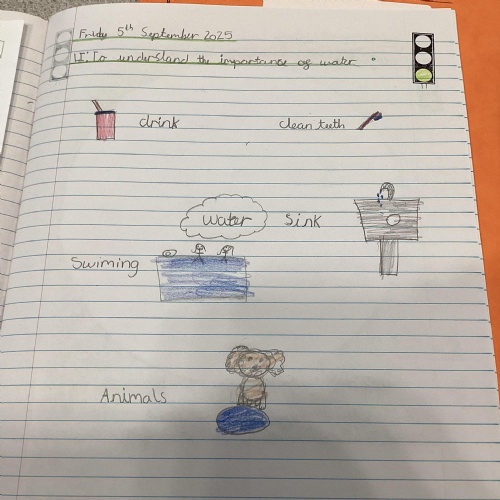 Friday 5th September 2025
LI: To understand the importance of water.
drink
clean teeth
water
sink
Swiming
Animals